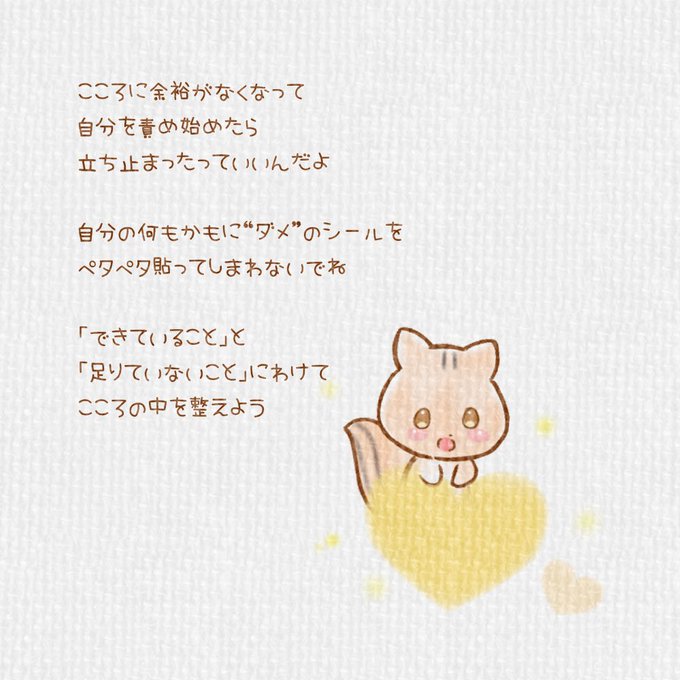 こころに余裕がなくなって
自分を責め始めたら
立ち止まったっていいんだよ
自分の何もかもに“ダメ”のシールを
ペタペタ貼ってしまわないでね
「できていること」と
「足りていないこと」にわけて
こころの中を整えよう